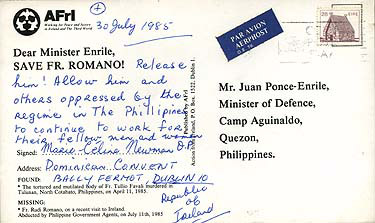 AFrI
Working for Peace and Justice
in Ireland and The Third World
30 July 1985
PAR AVION
AERPHOST
28
EIRE
Dear Minister Enrile,
SAVE FR. ROMANO! Release
him! Allow him and
others oppressed by the
regime in The Phillipines
to continue to work for
their fellow men and women
Signed: Marie-Celine Newman O.P.
Address: DOMINICAN CONVENT
BALLYFERMOT, DUBLIN 10
Republic
of
Ireland
* The tortured and mutilated body of Fr. Tullio Favali murdered in
Tulunan, North Cotabato, Philippines, on April 11, 1985.
MISSING:
* Fr. Rudi Romano, on a recent visit to Ireland.
Abducted by Philippine Government Agents, on July 11th, 1985
Published by AFrI
Action from Ireland, P.O. Box 1522, Dublin 1.
Mr. Juan Ponce-Enrile,
Minister of Defence,
Camp Aguinaldo,
Quezon,
Philippines.